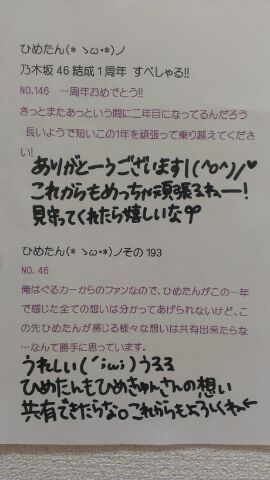 ひめたん(* ゝω・*)ノ
乃木坂46結成1周年 すぺしゃる!!
NO.146 一周年おめでとう!!
きっとまたあっという間に二年目になってるんだろう
長いようで短いこの1年を頑張って乗り越えてくださ
い!
ありがとーうございます!(^o^)/♥
これからもめっちゃ頑張るねー!
見守ってくれたら嬉しいな♡
ひめたん(* ゝω・*)ノその193
NO.46
俺はぐるカーからのファンなので、ひめたんがこの一年
で感じた全ての想いは分かってあげられないけど、こ
の先ひめたんが感じる様々な想いは共有出来たらな
…なんて勝手に思っています。
うれしい(´;ω;)うるる
ひめたんもひめきゅんさんの想い
共有できたらな。これからもよろしくねー